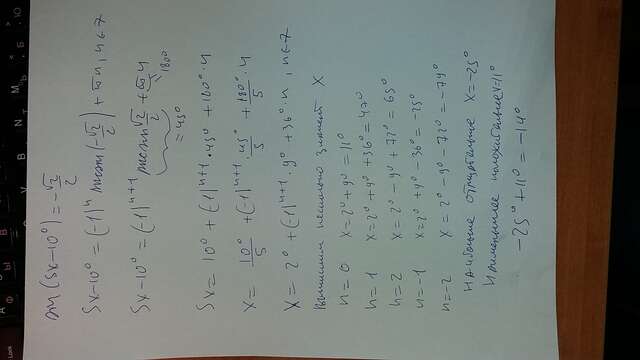 sin(5x-10°) = -√2/2
5x-10° = (-1)ⁿ arcsin(-√2/2) + πn, n∈Z
5x-10° = (-1)ⁿ⁺¹ arcsin √2/2 + πn
=45° =180°
5x = 10° + (-1)ⁿ⁺¹·45° + 180°·n
x = 10°/5 + (-1)ⁿ⁺¹·45°/5 + 180°/5·n
x = 2° + (-1)ⁿ⁺¹·9° + 36°·n, n∈Z
Вычислим несколько значений x
n=0 x=2°+9°=11°
n=1 x=2°+9°+36°=47°
n=2 x=2°-9°+72°=65°
n=-1 x=2°+9°-36°=-25°
n=-2 x=2°-9°-72°=-79°
Наибольшее отрицательное x=-25°
Наименьшее положительное x=11°
-25°+11°=-14°